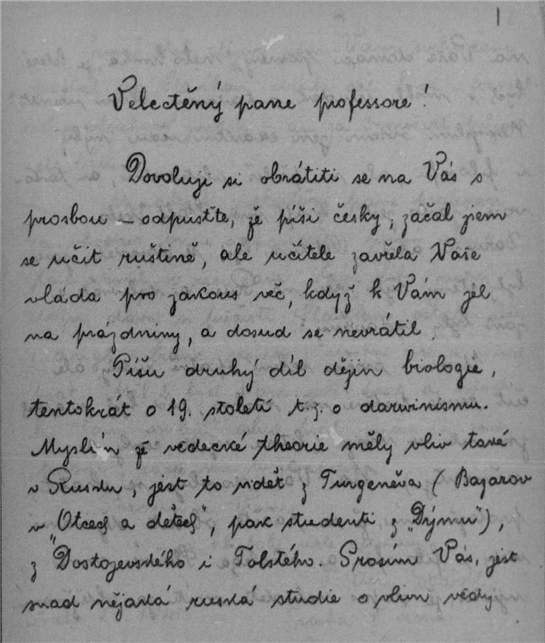 1
Velectěný pane professore!
Dovoluji si obrátiti se na Vás s
prosbou – odpusťte, že píši česky; začal jsem
se učit ruštině, ale učitele zavřela Vaše
vláda pro jakous věc, když k Vám jel
na prázdniny, a dosud se nevrátil.
Píšu druhý díl dějin biologie,
tentokrát o 19. století t. j. o darwinismu.
Myslím že vědecké theorie měly vliv také
v Rusku, jest to vidět z Turgeněva (Bazarov
v "Otcech a dětech", pak studenti z "Dýmu"),
z Dostojevského i Tolstého. Prosím Vás, jest
snad nějaká ruská studie o vlivu vědy